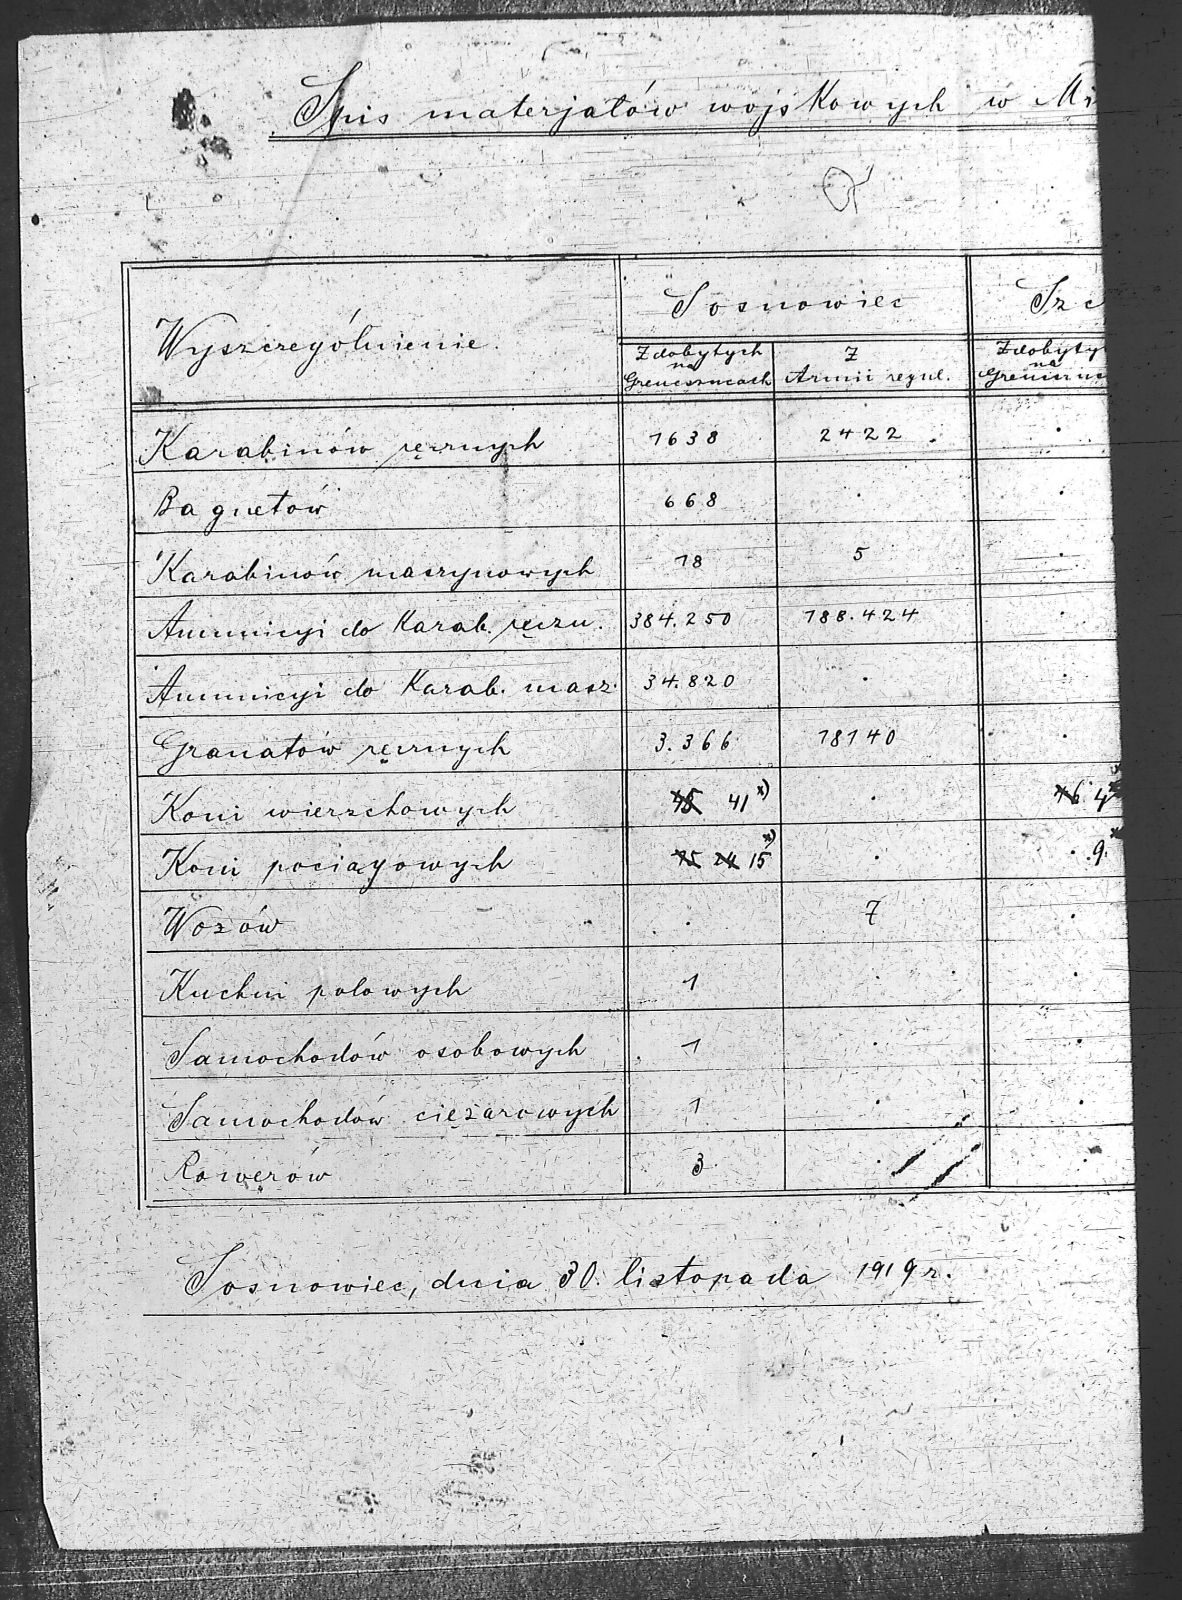 Spis materjałów wojskowych w Mi
Wyszczególnienie.
Sosnowiec
Szc
Zdobytych na Grenzschutzach
Z Armii regul.
Zdobyty na
Karabinów ręcznych 1638 2422 .
Bagnetów 668 . .
Karabinów maszynowych 18 5 .
Amunicyi do Karab. ręczn. 384.250 188.424 .
Amunicyi do Karab. masz. 34.820 . .
Granatów ręcznych 3.366 18140 .
Koni wierzchowych 41 x) . 4
Koni pociągowych 15 x) . 9.
Wozów . 7 .
Kuchni polowych 1 . .
Samochodów osobowych 1 . .
Samochodów ciężarowych 1 . .
Rowerów 3 . .
Sosnowiec, dnia 30. listopada 1919 r.